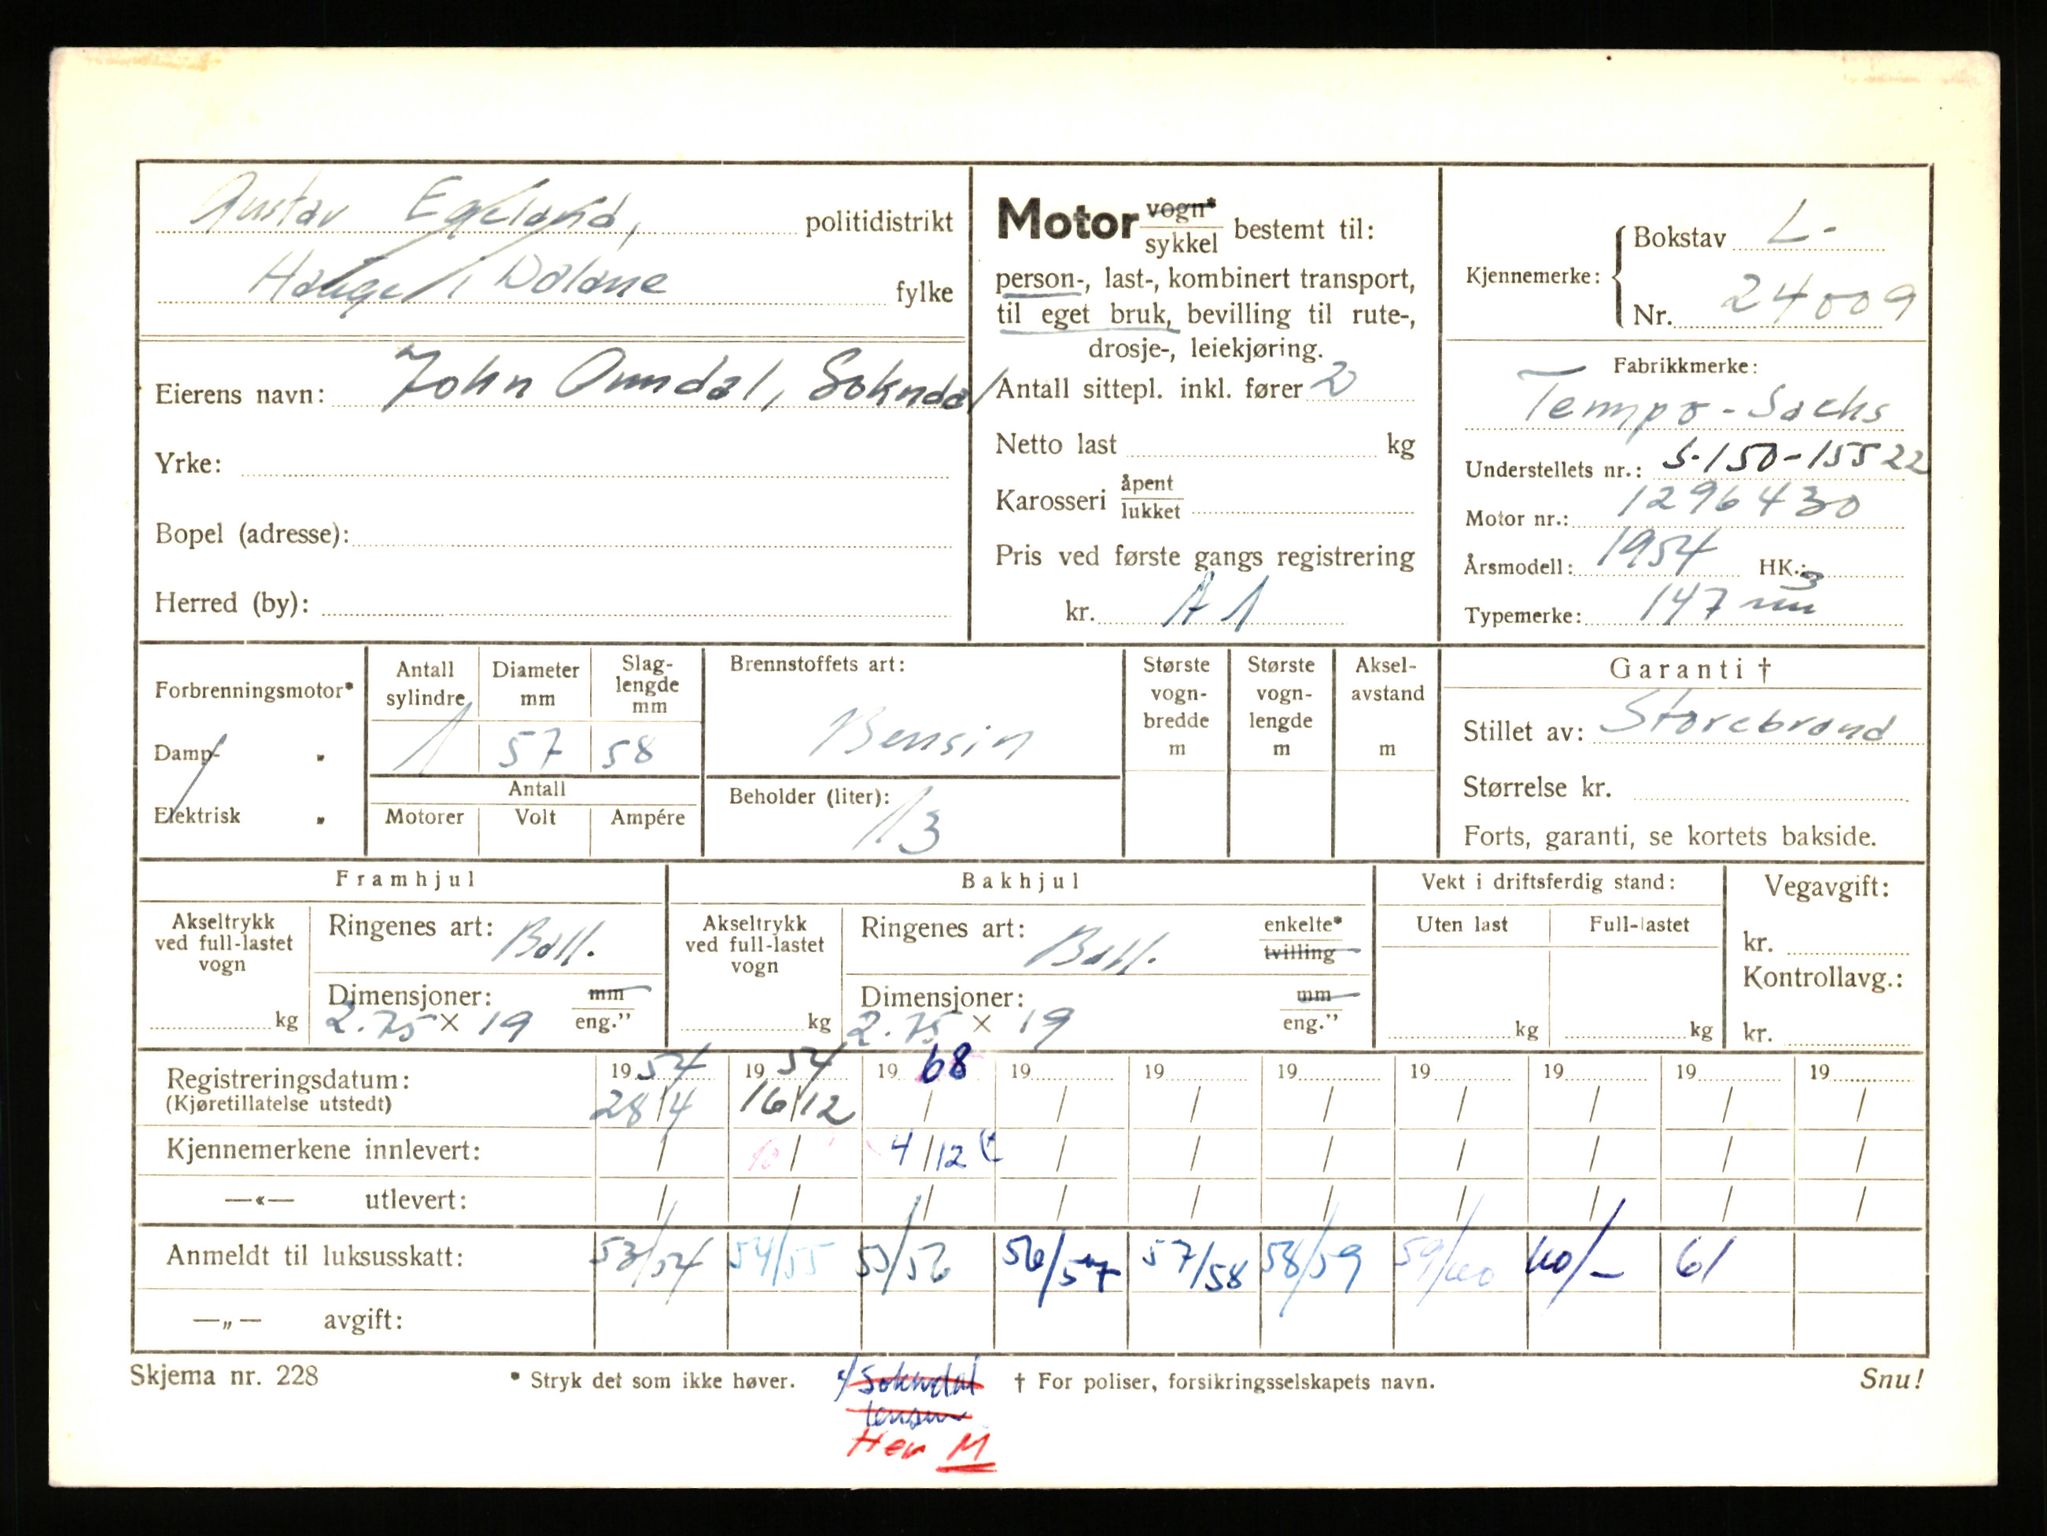 Gustav Egeland, politidistrikt
Hauge i Dalane fylke
Eierens navn: John Omdal, Sokndal
Yrke:
Bopel (adresse):
Herred (by):
Motor vogn* sykkel bestemt til:
person-, last-, kombinert transport,
til eget bruk, bevilling til rute-,
drosje-, leiekjøring.
Antall sittepl. inkl. fører 2
Netto last kg
Karosseri åpent lukket
Pris ved første gangs registrering
kr. A 1
Kjennemerke: Bokstav L-
Nr. 24009
Fabrikkmerke:
Tempo-Sachs
Understellets nr.: S-150-15522
Motor nr.: 1296430
Årsmodell: 1954 HK.:
Typemerke: 147
Forbrenningsmotor*
Damp- „
Elektrisk „
Antall sylindre 1
Diameter mm 57
Slag-lengde mm 58
Antall
Motorer Volt Ampére
Brennstoffets art:
Bensin
Beholder (liter):
13
Største vogn-bredde m
Største vogn-lengde m
Aksel-avstand m
Garanti †
Stillet av: Storebrand
Størrelse kr.
Forts, garanti, se kortets bakside.
Framhjul
Akseltrykk ved full-lastet vogn
kg
Ringenes art: Ball.
Dimensjoner: mm
2.75 × 19 eng."
Bakhjul
Akseltrykk ved full-lastet vogn
kg
Ringenes art: Ball. enkelte* tvilling
Dimensjoner: mm
2.75 × 19 eng."
Vekt i driftsferdig stand:
Uten last Full-lastet
kg kg
Vegavgift:
kr.
Kontrollavg.:
kr.
Registreringsdatum: 19 54 19 54 19 68 19 19 19 19 19 19 19
(Kjøretillatelse utstedt) 28/4 16/12 / / / / / / / /
Kjennemerkene innlevert: / / 4/12 / / / / / / /
—«— utlevert: / / / / / / / / / /
Anmeldt til luksusskatt: 53/54 54/55 55/56 56/57 57/58 58/59 59/60 60/- 61
—„— avgift:
Skjema nr. 228 * Stryk det som ikke høver. Sokndal † For poliser, forsikringsselskapets navn. Snu!
Her M